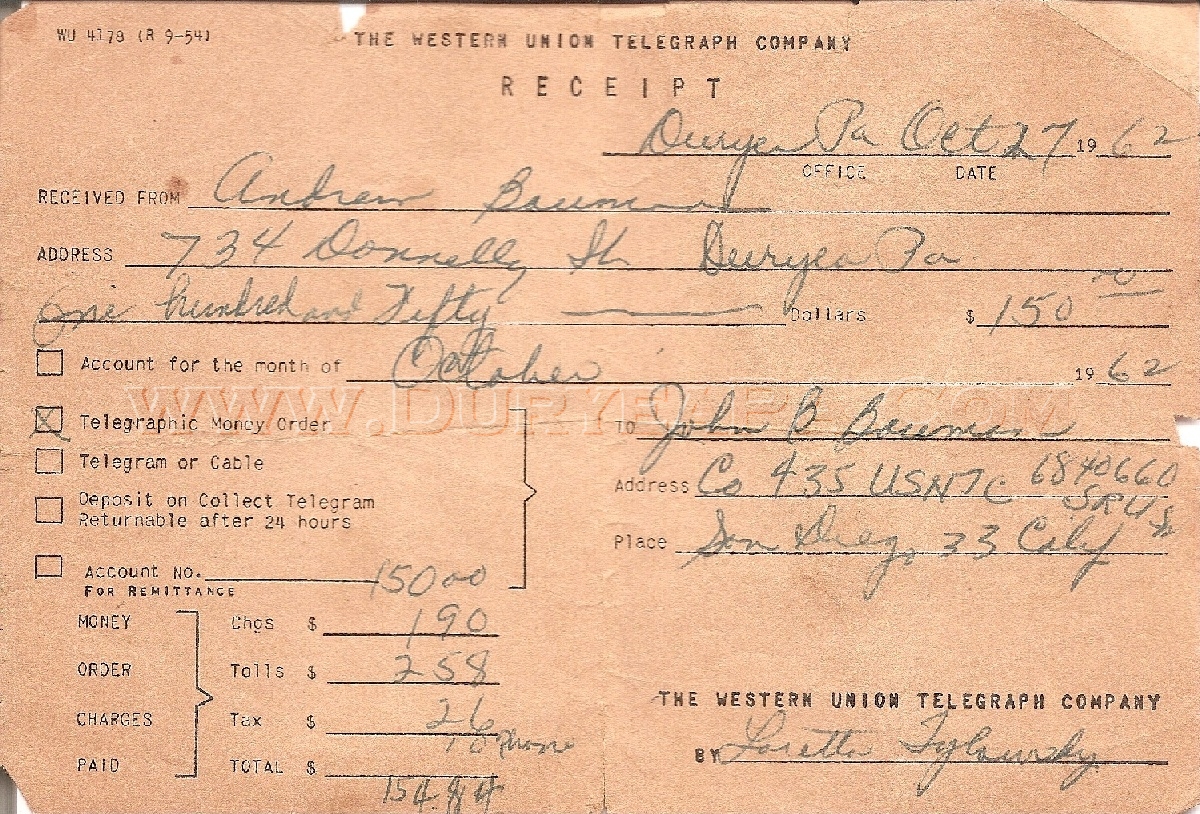 WU 4179 (R 9-54)
THE WESTERN UNION TELEGRAPH COMPANY
RECEIPT
Duryea Pa Oct 27 19 62
OFFICE DATE
RECEIVED FROM Andrew Bauman
ADDRESS 734 Donnelly St. Duryea Pa.
One hundred and Fifty Dollars $ 150 00
Account for the month of October 19 62
WWW.DURYEAPA.COM
X Telegraphic Money Order
Telegram or Cable
Deposit on Collect Telegram
Returnable after 24 hours
Account No. 150 00
FOR REMITTANCE
To John B Bauman
Address Co 435 USNTC 6840660
SRUSN
Place San Diego 33 Calif
MONEY Chgs $ 1 90
ORDER Tolls $ 2 58
CHARGES Tax $ 26
10 phone
PAID TOTAL $ 154.84
THE WESTERN UNION TELEGRAPH COMPANY
BY Loretta